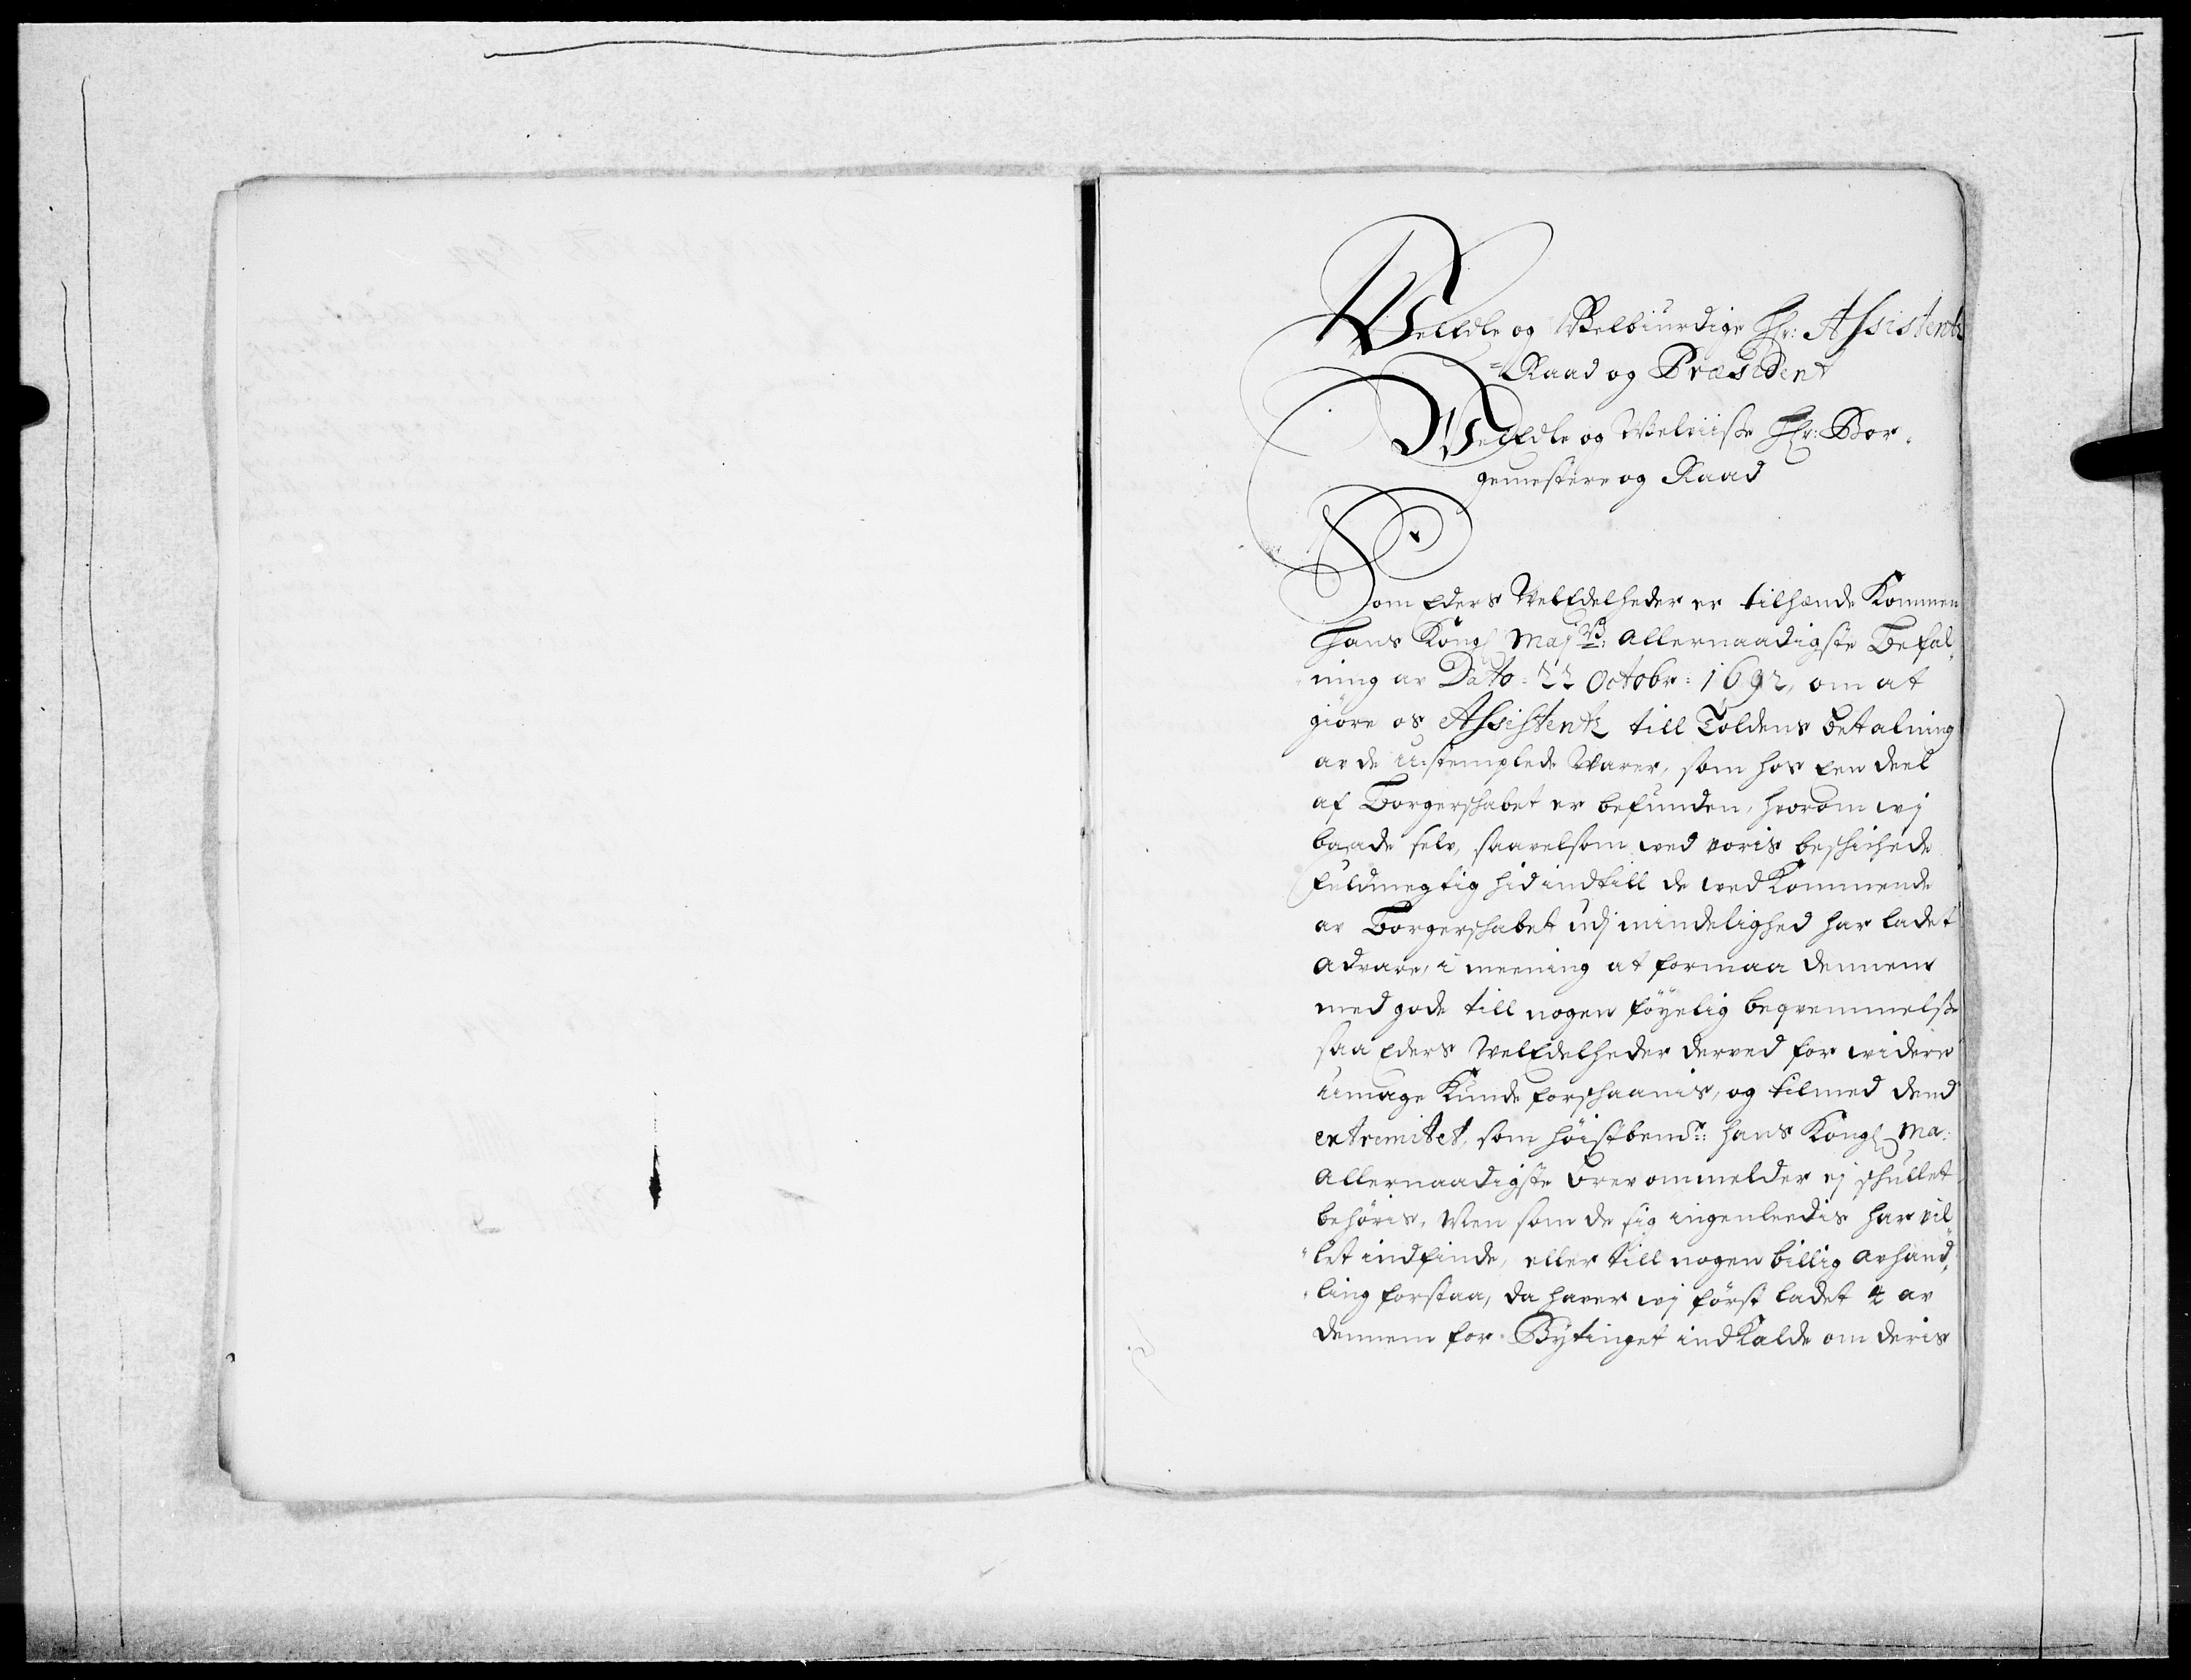 WelEdle og Welbiurdige Hr: Assistentz
=Raad og Præsident
WelEdle og Welviise Hr: Bor-
gemestere og Raad
Som Eders VelEdelheder er tilhænde Kommen
Hans Kongl Maj tz: allernaadigste Befal-
ning av Dato: 22 Octobr: 1692, om at
giöre os Assistentz till Toldens betalning
av de u-stemplede Varer, som hos een deel
af Borgerskabet er befunden, hvorom wj
baade selv, saavelsom ved voris beskichede
fuldmegtig hid indtill de vedkommende
av Borgerskabet udj mindelighed har ladet
advare, i meening at formaa dennem
med gode till nogen föyelig beqvemmelse
saa Eders VelEdelheder derved for widere
umage Kunde forskaanis, og tilmed dend
extremitet, som höistbemte: Hans Kongl Ma:
allernaadigste brev ommelder ej skullet
behöris, Men som de sig ingenleedis har vil-
let indfinde, eller till nogen billig avhand-
ling forstaa, da haver wj först ladet 4 av
dennem for Bytinget indkalde om deris